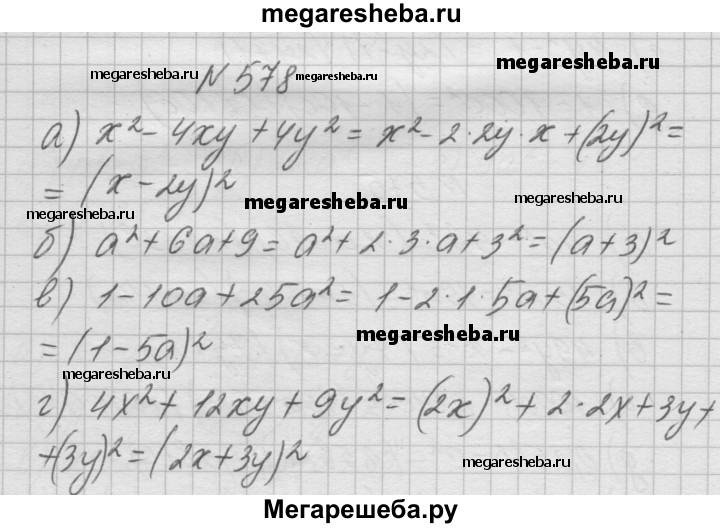 megaresheba.ru
N 578
megaresheba.ru
megaresheba.ru
megaresheba.ru
а) x² - 4xy + 4y² = x² - 2·2y·x + (2y)² =
= (x - 2y)²
megaresheba.ru
megaresheba.ru
megaresheba.ru
б) a² + 6a + 9 = a² + 2·3·a + 3² = (a + 3)²
в) 1 - 10a + 25a² = 1 - 2·1·5a + (5a)² =
= (1 - 5a)²
megaresheba.ru
megaresheba.ru
г) 4x² + 12xy + 9y² = (2x)² + 2·2x + 3y +
+ (3y)² = (2x + 3y)²
megaresheba.ru
Мегарешеба.ру